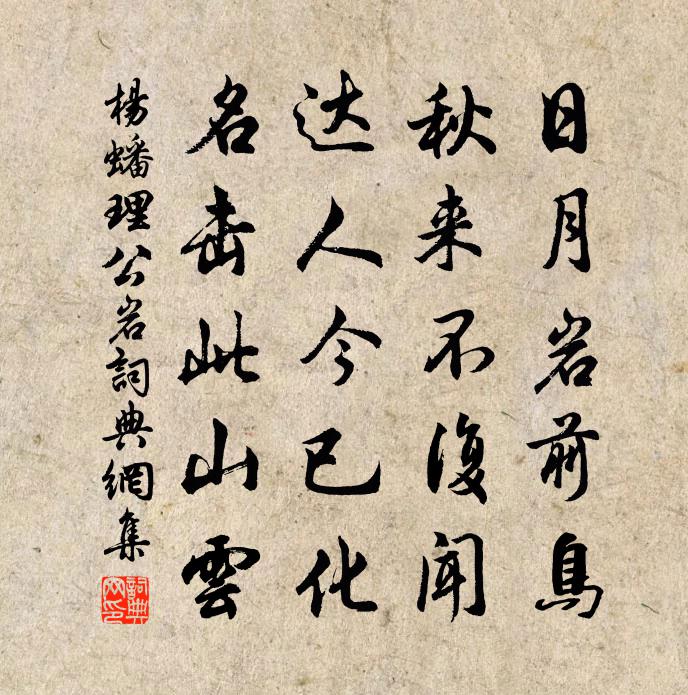 日月岩前鳥
秋来不復聞
达人今已化
名击此山雲
楊蟠理公岩詞典網集
詞典
网印